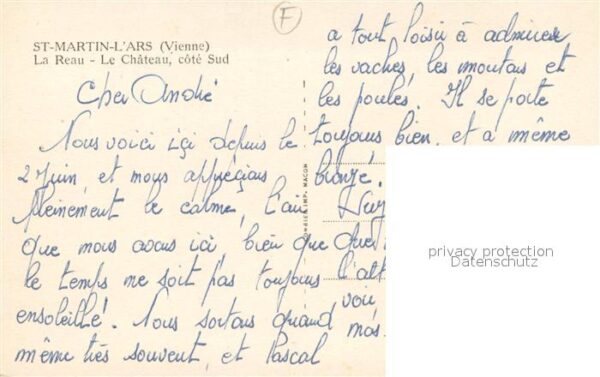 F
ST-MARTIN-L'ARS (Vienne)
La Reau - Le Château, côté Sud
Cher André
Nous voici içi depuis le
2 Juin, et nous appréçions
pleinement le calme, l'air
que nous avons ici, bien que
le temps ne soit pas toujours
ensoleillé. Nous sortons quand
même très souvent, et Pascal
a tout loisir à admirer
les vaches, les moutons et
les poules. Il se porte
toujours bien, et a même
bronzé.
l'alt
voir
mos.
COMBIER IMP. MACON
privacy protection
Datenschutz